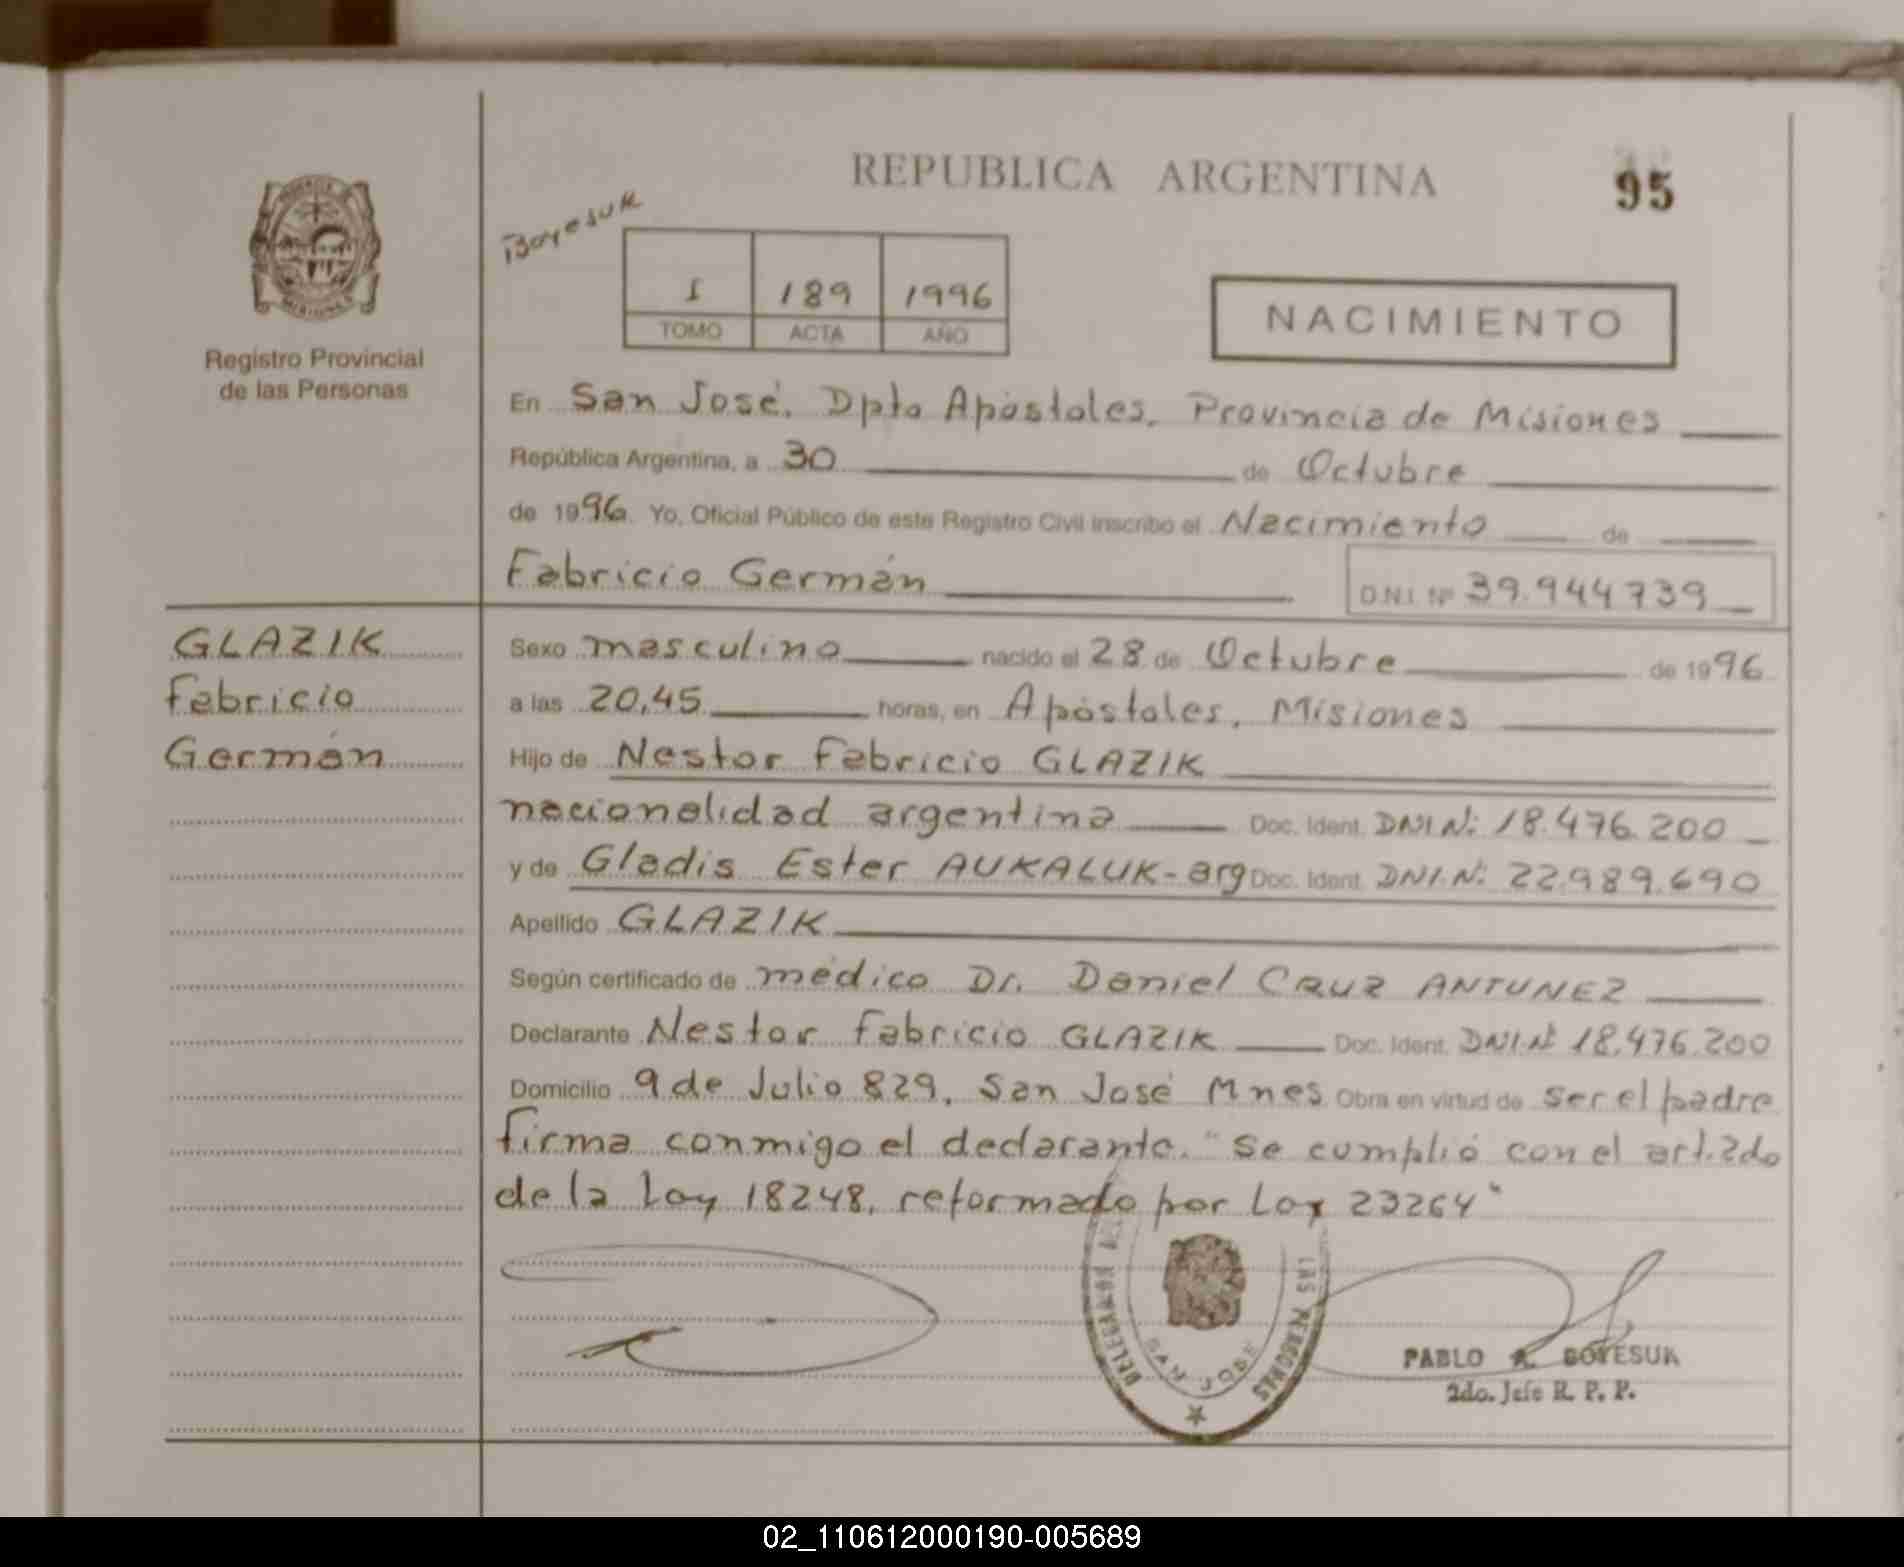 REPUBLICA ARGENTINA
95
Boyesuk
I 189 1996
TOMO ACTA AÑO
NACIMIENTO
Registro Provincial
de las Personas
MISIONES
En San José, Dpto Apóstoles, Provincia de Misiones
República Argentina, a 30 de Octubre
de 1996. Yo, Oficial Público de este Registro Civil inscribo el Nacimiento de
Fabricio Germán D.N.I. Nº 39.944739
GLAZIK
Fabricio
Germán
Sexo masculino nacido el 28 de Octubre de 1996
a las 20,45 horas, en Apóstoles, Misiones
Hijo de Nestor Fabricio GLAZIK
nacionalidad argentina Doc. Ident. DNI Nº: 18.476.200
y de Gladis Ester AUKALUK-arg Doc. Ident. DNI.Nº: 22.989.690
Apellido GLAZIK
Según certificado de médico Dr. Daniel CRUZ ANTUNEZ
Declarante Nestor Fabricio GLAZIK Doc. Ident. DNI.Nº 18.476.200
Domicilio 9 de Julio 829, San José Mnes Obra en virtud de ser el padre
firma conmigo el declarante. "Se cumplió con el art. 2do
de la Ley 18248, reformado por Ley 23264"
LAS PERSONAS
SAN JOSE
PABLO A. BOYESUK
2do. Jefe R. P. P.
02_110612000190-005689